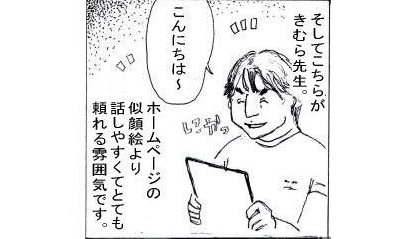 そしてこちらが
きむら先生。
こんにちは〜
にこっ
ホームページの
似顔絵より
話しやすくてとても
頼れる雰囲気です。